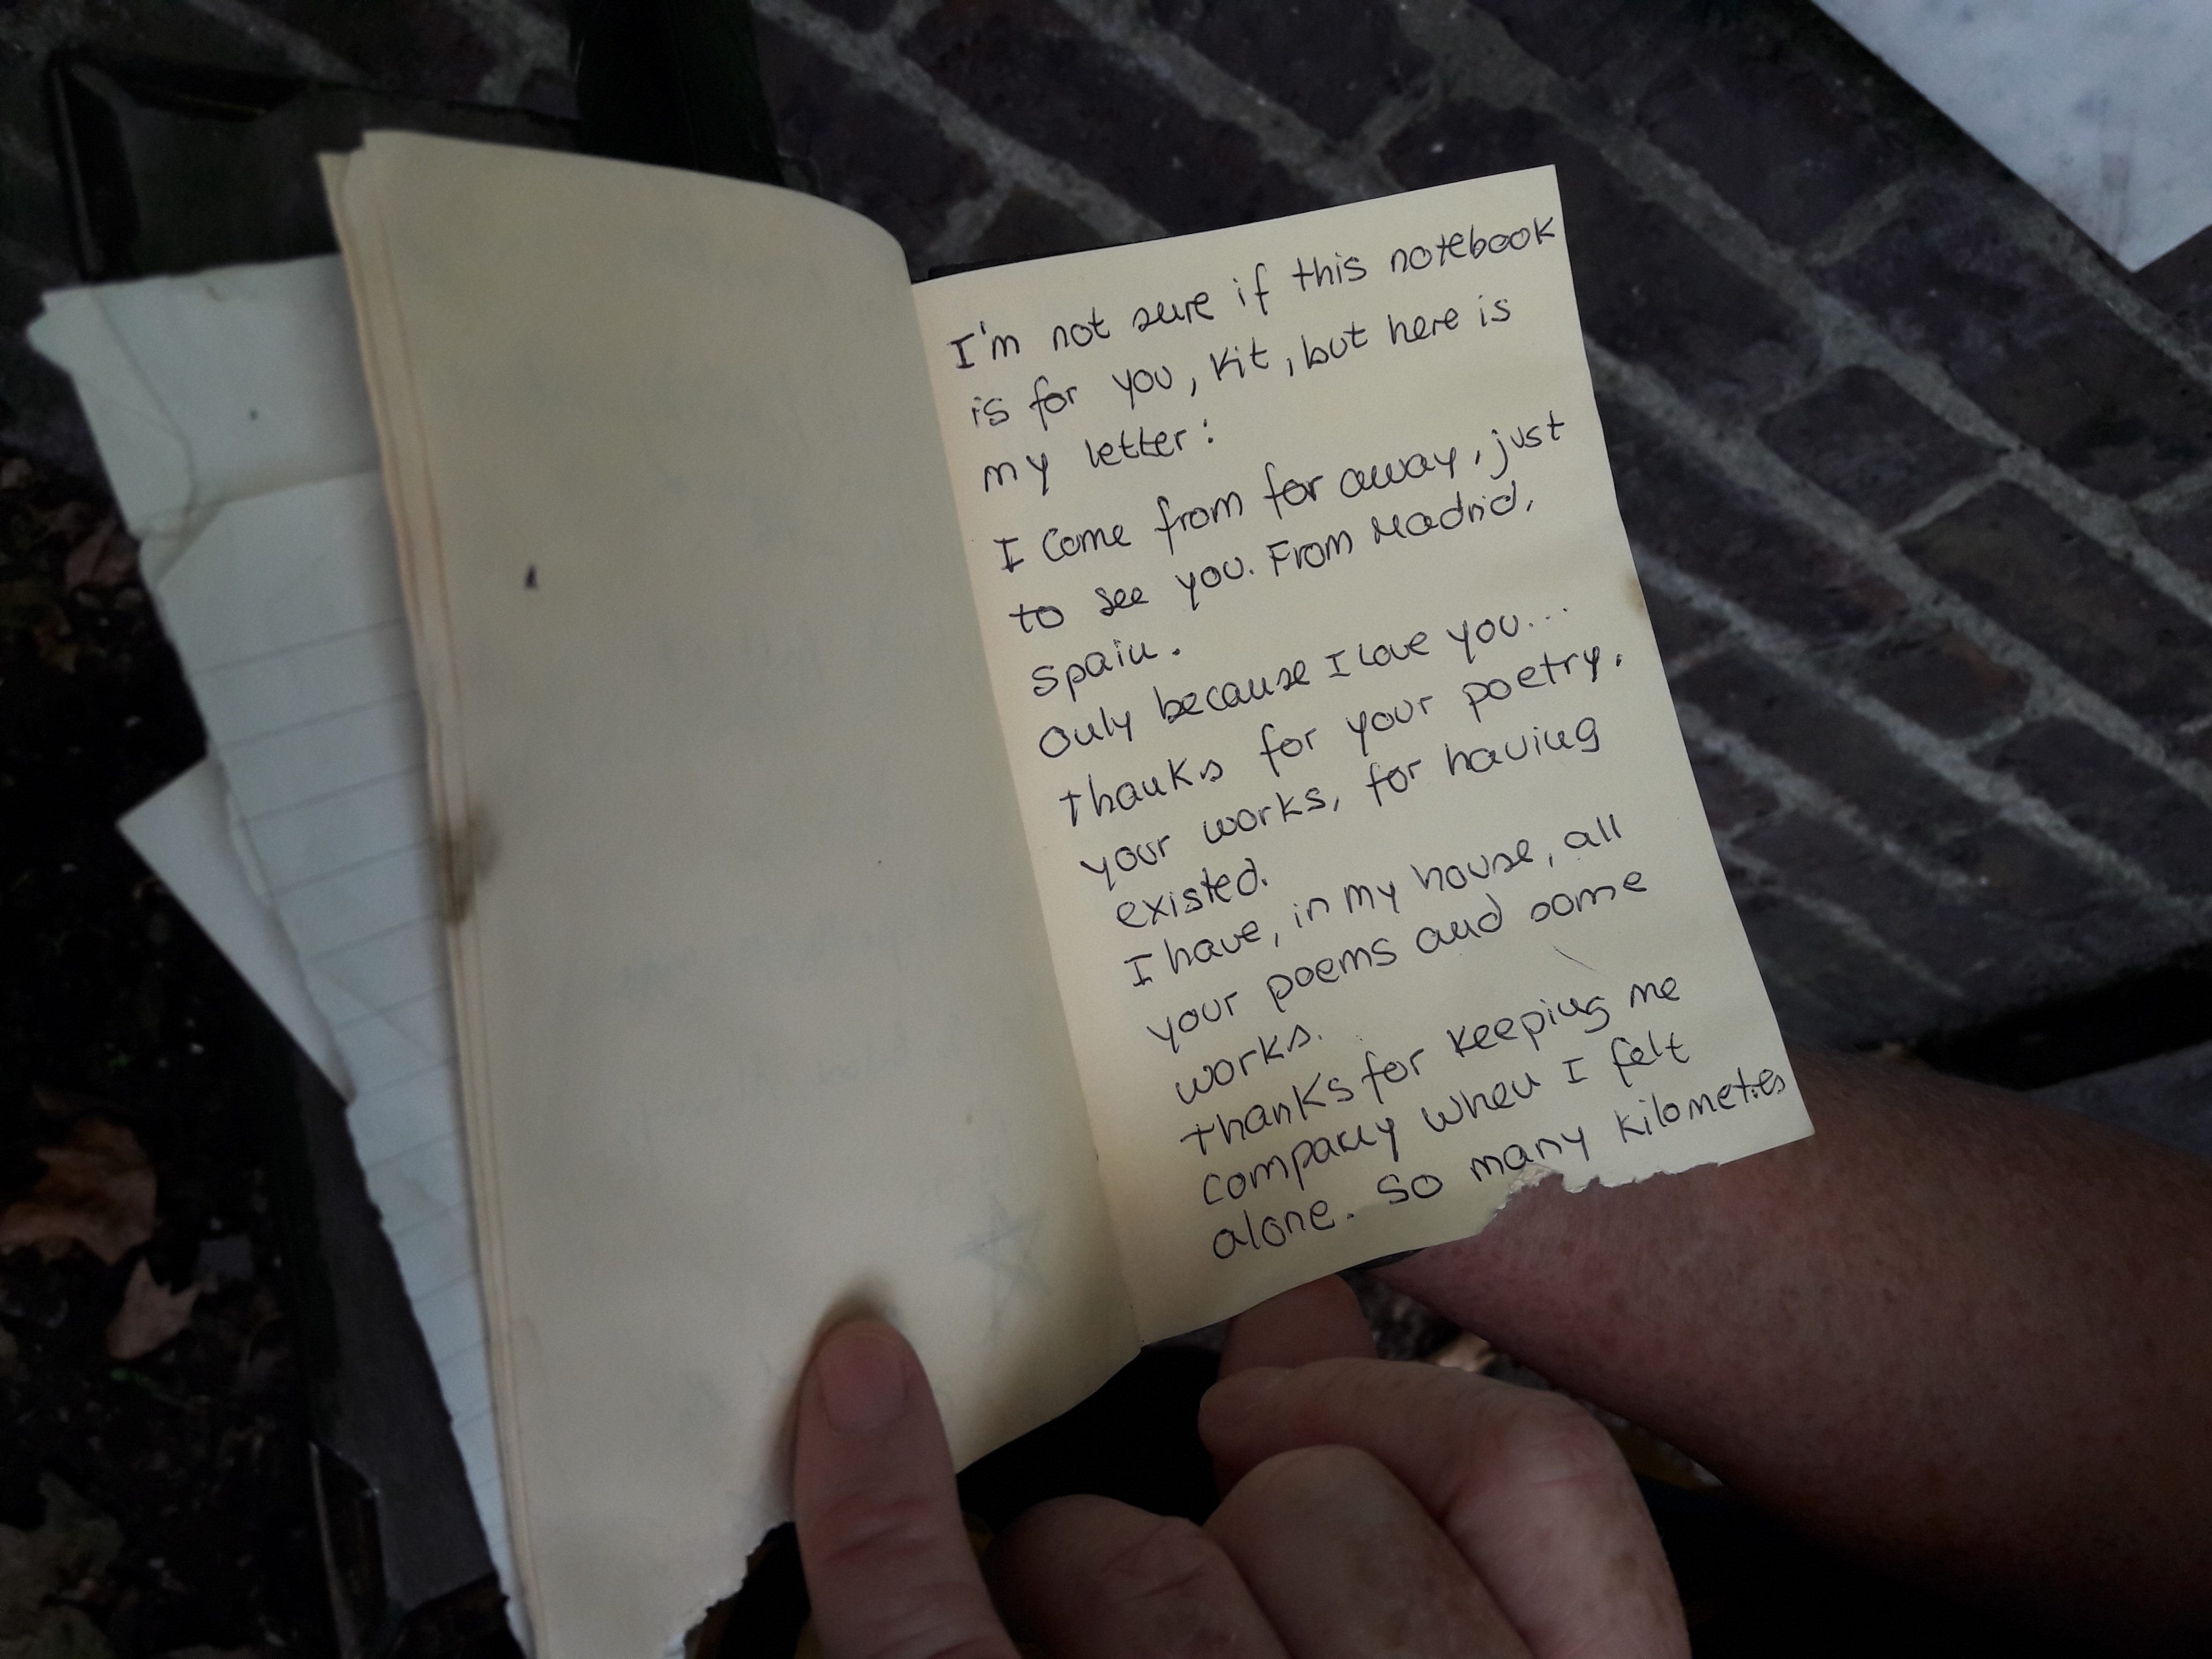 I'm not sure if this notebook
is for you, Kit, but here is
my letter:
I come from far away, just
to see you. From Madrid,
Spain.
Only because I love you...
thanks for your poetry,
your works, for having
existed.
I have, in my house, all
your poems and some
works.
thanks for keeping me
company when I felt
alone. So many kilometres